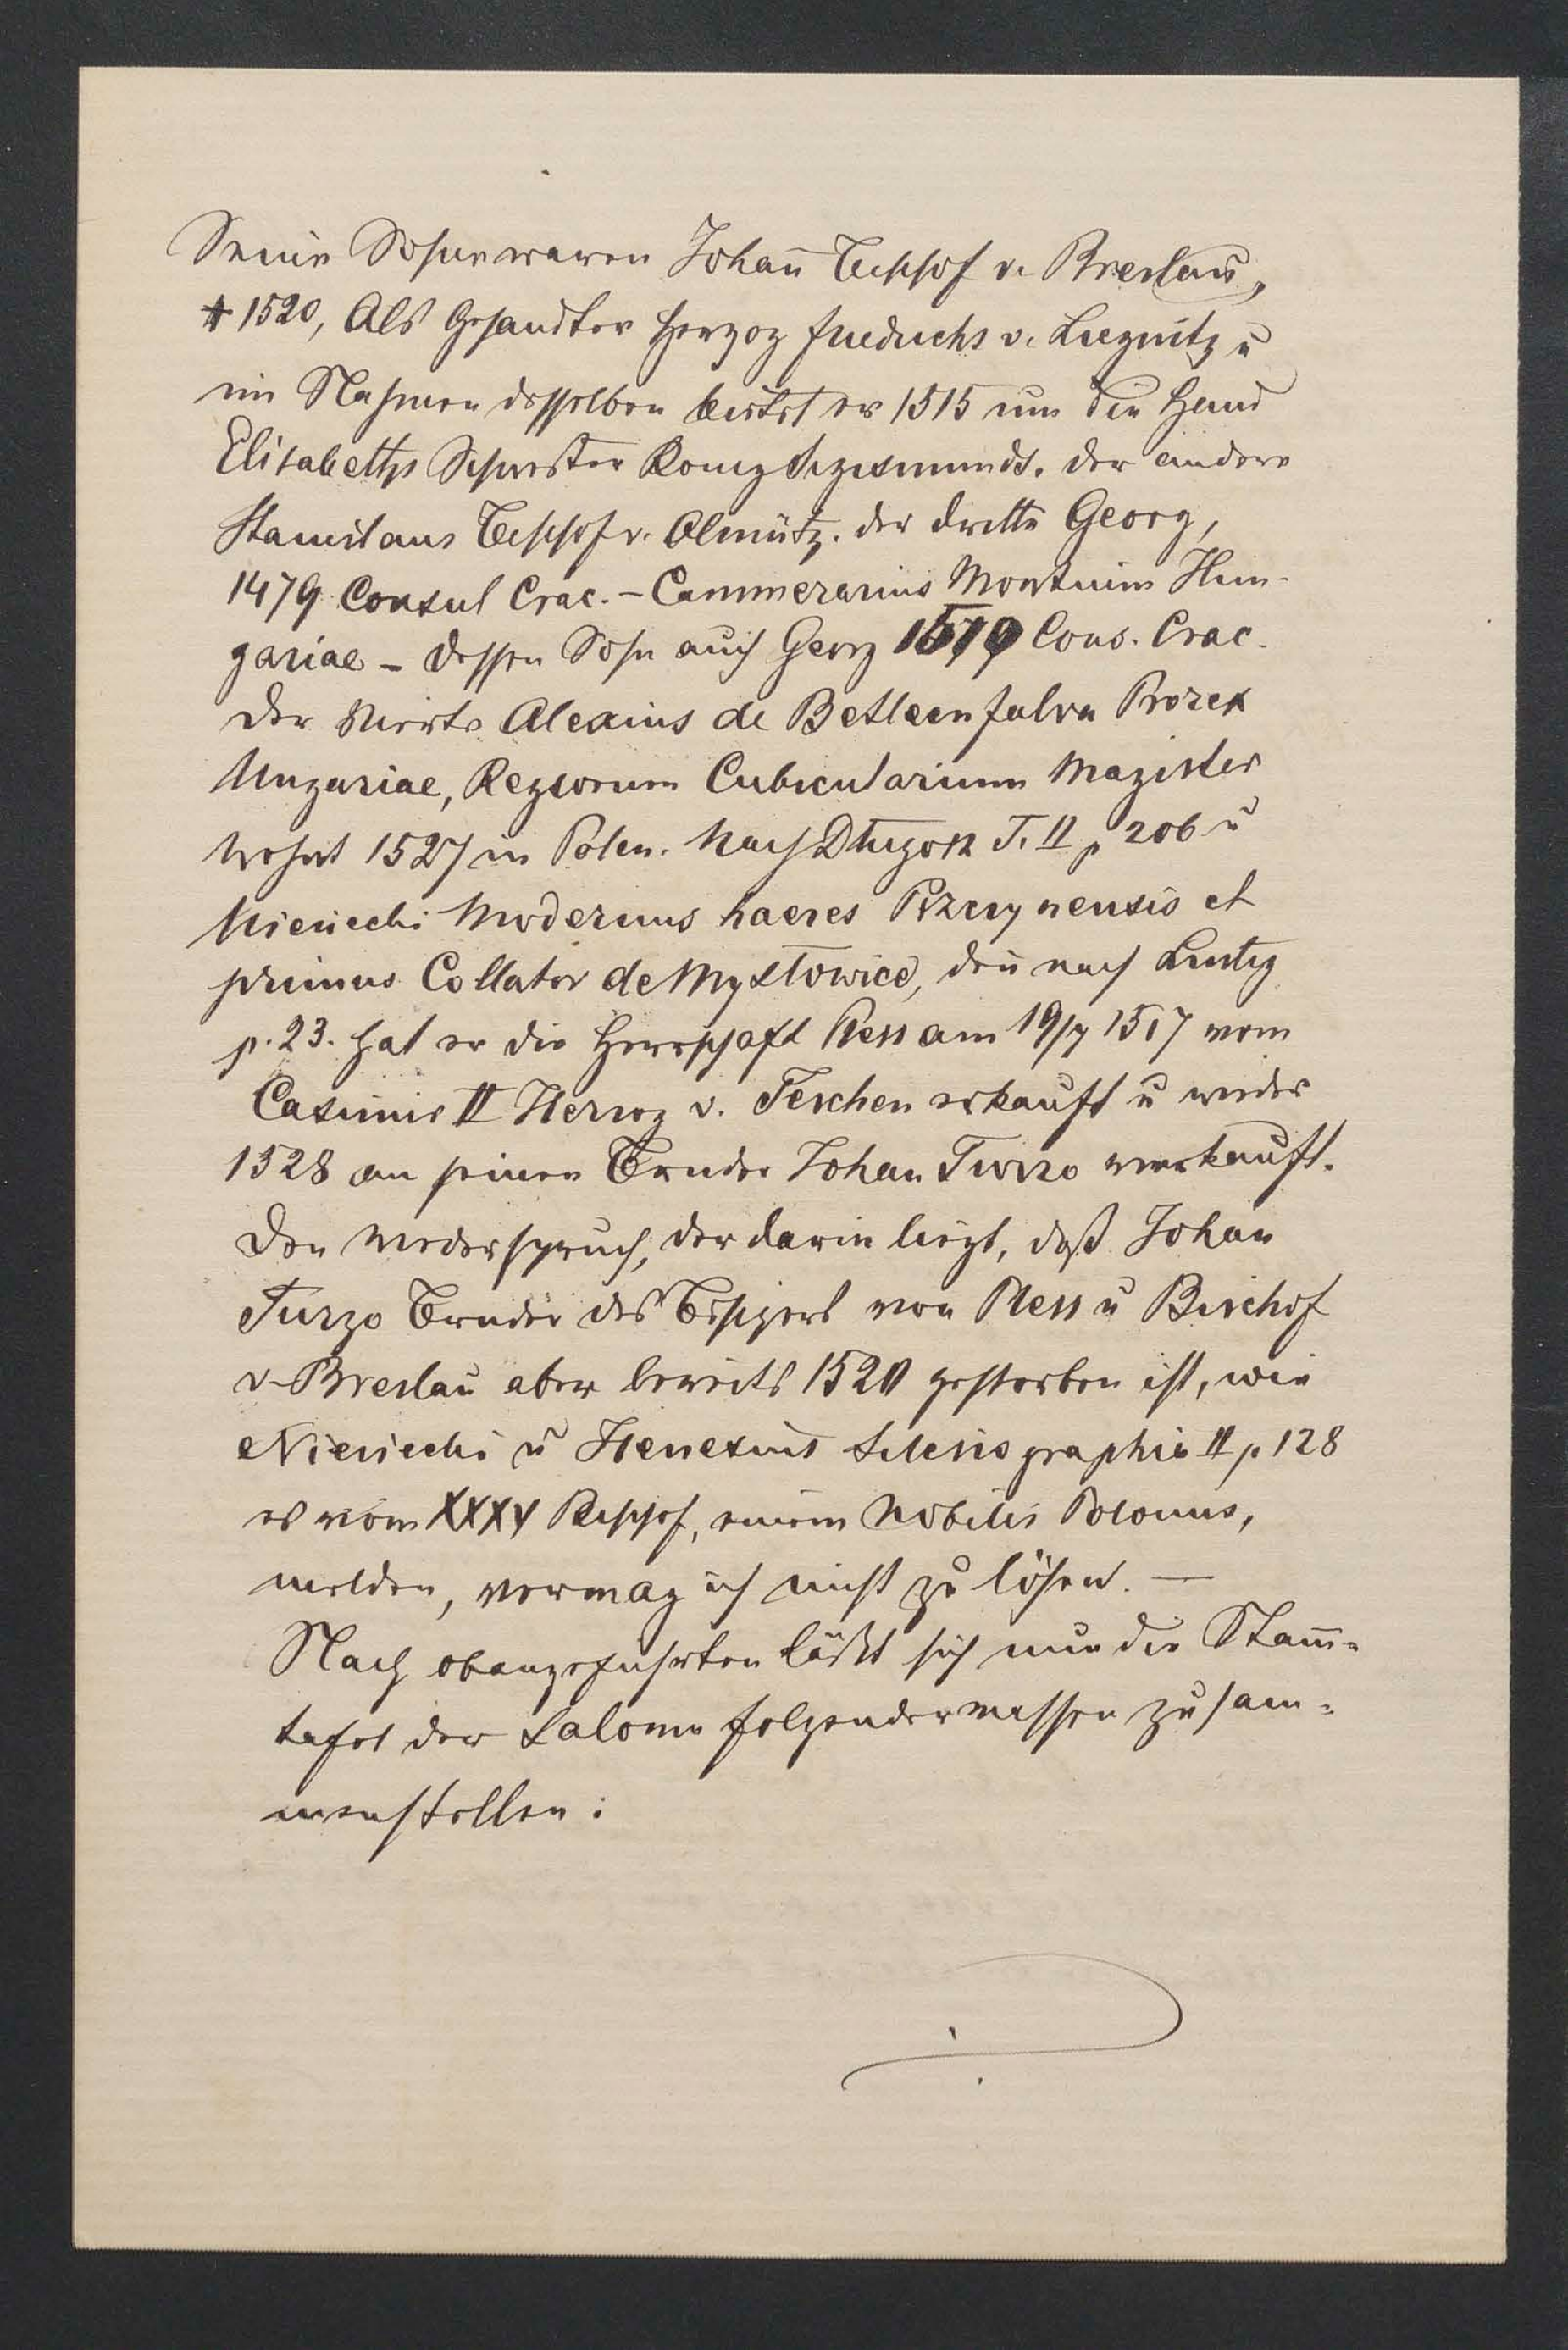 Seine Sohne waren Johañ Bischof v. Breslau,
† 1520, Als Gesandter Herzog Friedrichs v. Liegnitz u
im Nahmen desselben bittet er 1515 um die Hand
Elisabeths Schwester Konig Sigismunds. der andere
Stanislaus Bischof v. Olmütz. der dritte Georg,
1479 Consul Crac. – Cammerarius Montium Hun-
gariae – dessen Sohn auch Georg 1519 Cons. Crac.
Der Vierte Alexius de Betleenfalva Prorex
Ungariae, Regiorum Cubicularium Magister
wohnt 1527 in Polen. Nach Długosz T. II p 206 u
Niesiecki Modernus haeres Pszczynensis et
primus Collator de Mysłowice, deñ nach Lustig
p. 23. hat er die Herrschaft Pless am 19/7 1517 vom
Casimir II Herzog v. Teschen erkauft u wieder
1528 an seinen Bruder Johan Turzo verkauft.
Den Wiederspruch, der darin liegt, daß Johan
Turzo Bruder des Besitzers von Pless u Bischof
v. Breslau aber bereits 1520 gestorben ist, wie
Niesiecki u Henelius Silesiographia II p 128
es vom XXXV Bischof, einem Nobilis Polonus,
melden, vermag ich nicht zu lösen. —
Nach obangefuhrten läßt sich nun die Stam̄-
tafel der Salome folgendermassen zusam-
menstellen: